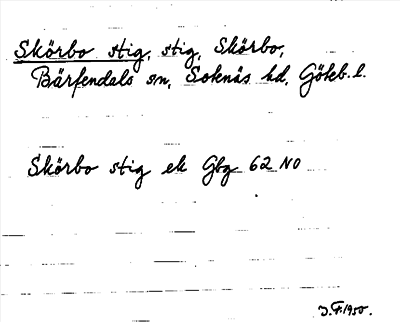 Skörbo stig, stig, Skörbo,
Bärfendals sn, Soknäs hd, Göteb. l.
Skörbo stig ek Gbg 62 NO
J.F. 1950.